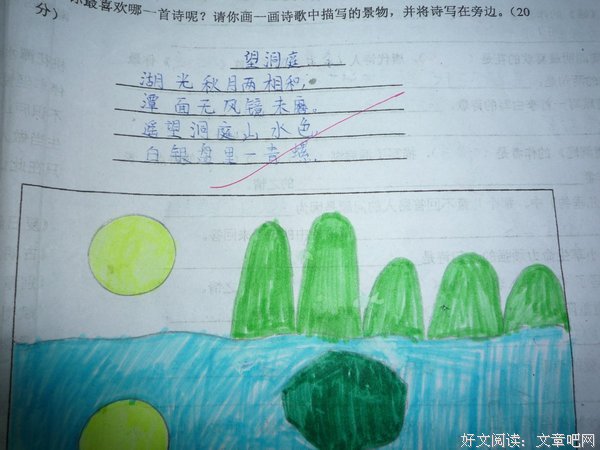 你最喜欢哪一首诗呢？请你画一画诗歌中描写的景物，并将诗写在旁边。（20
分）
望洞庭
湖光秋月两相和，
潭面无风镜未磨。
遥望洞庭山水色，
白银盘里一青螺。
好文阅读：文章吧网